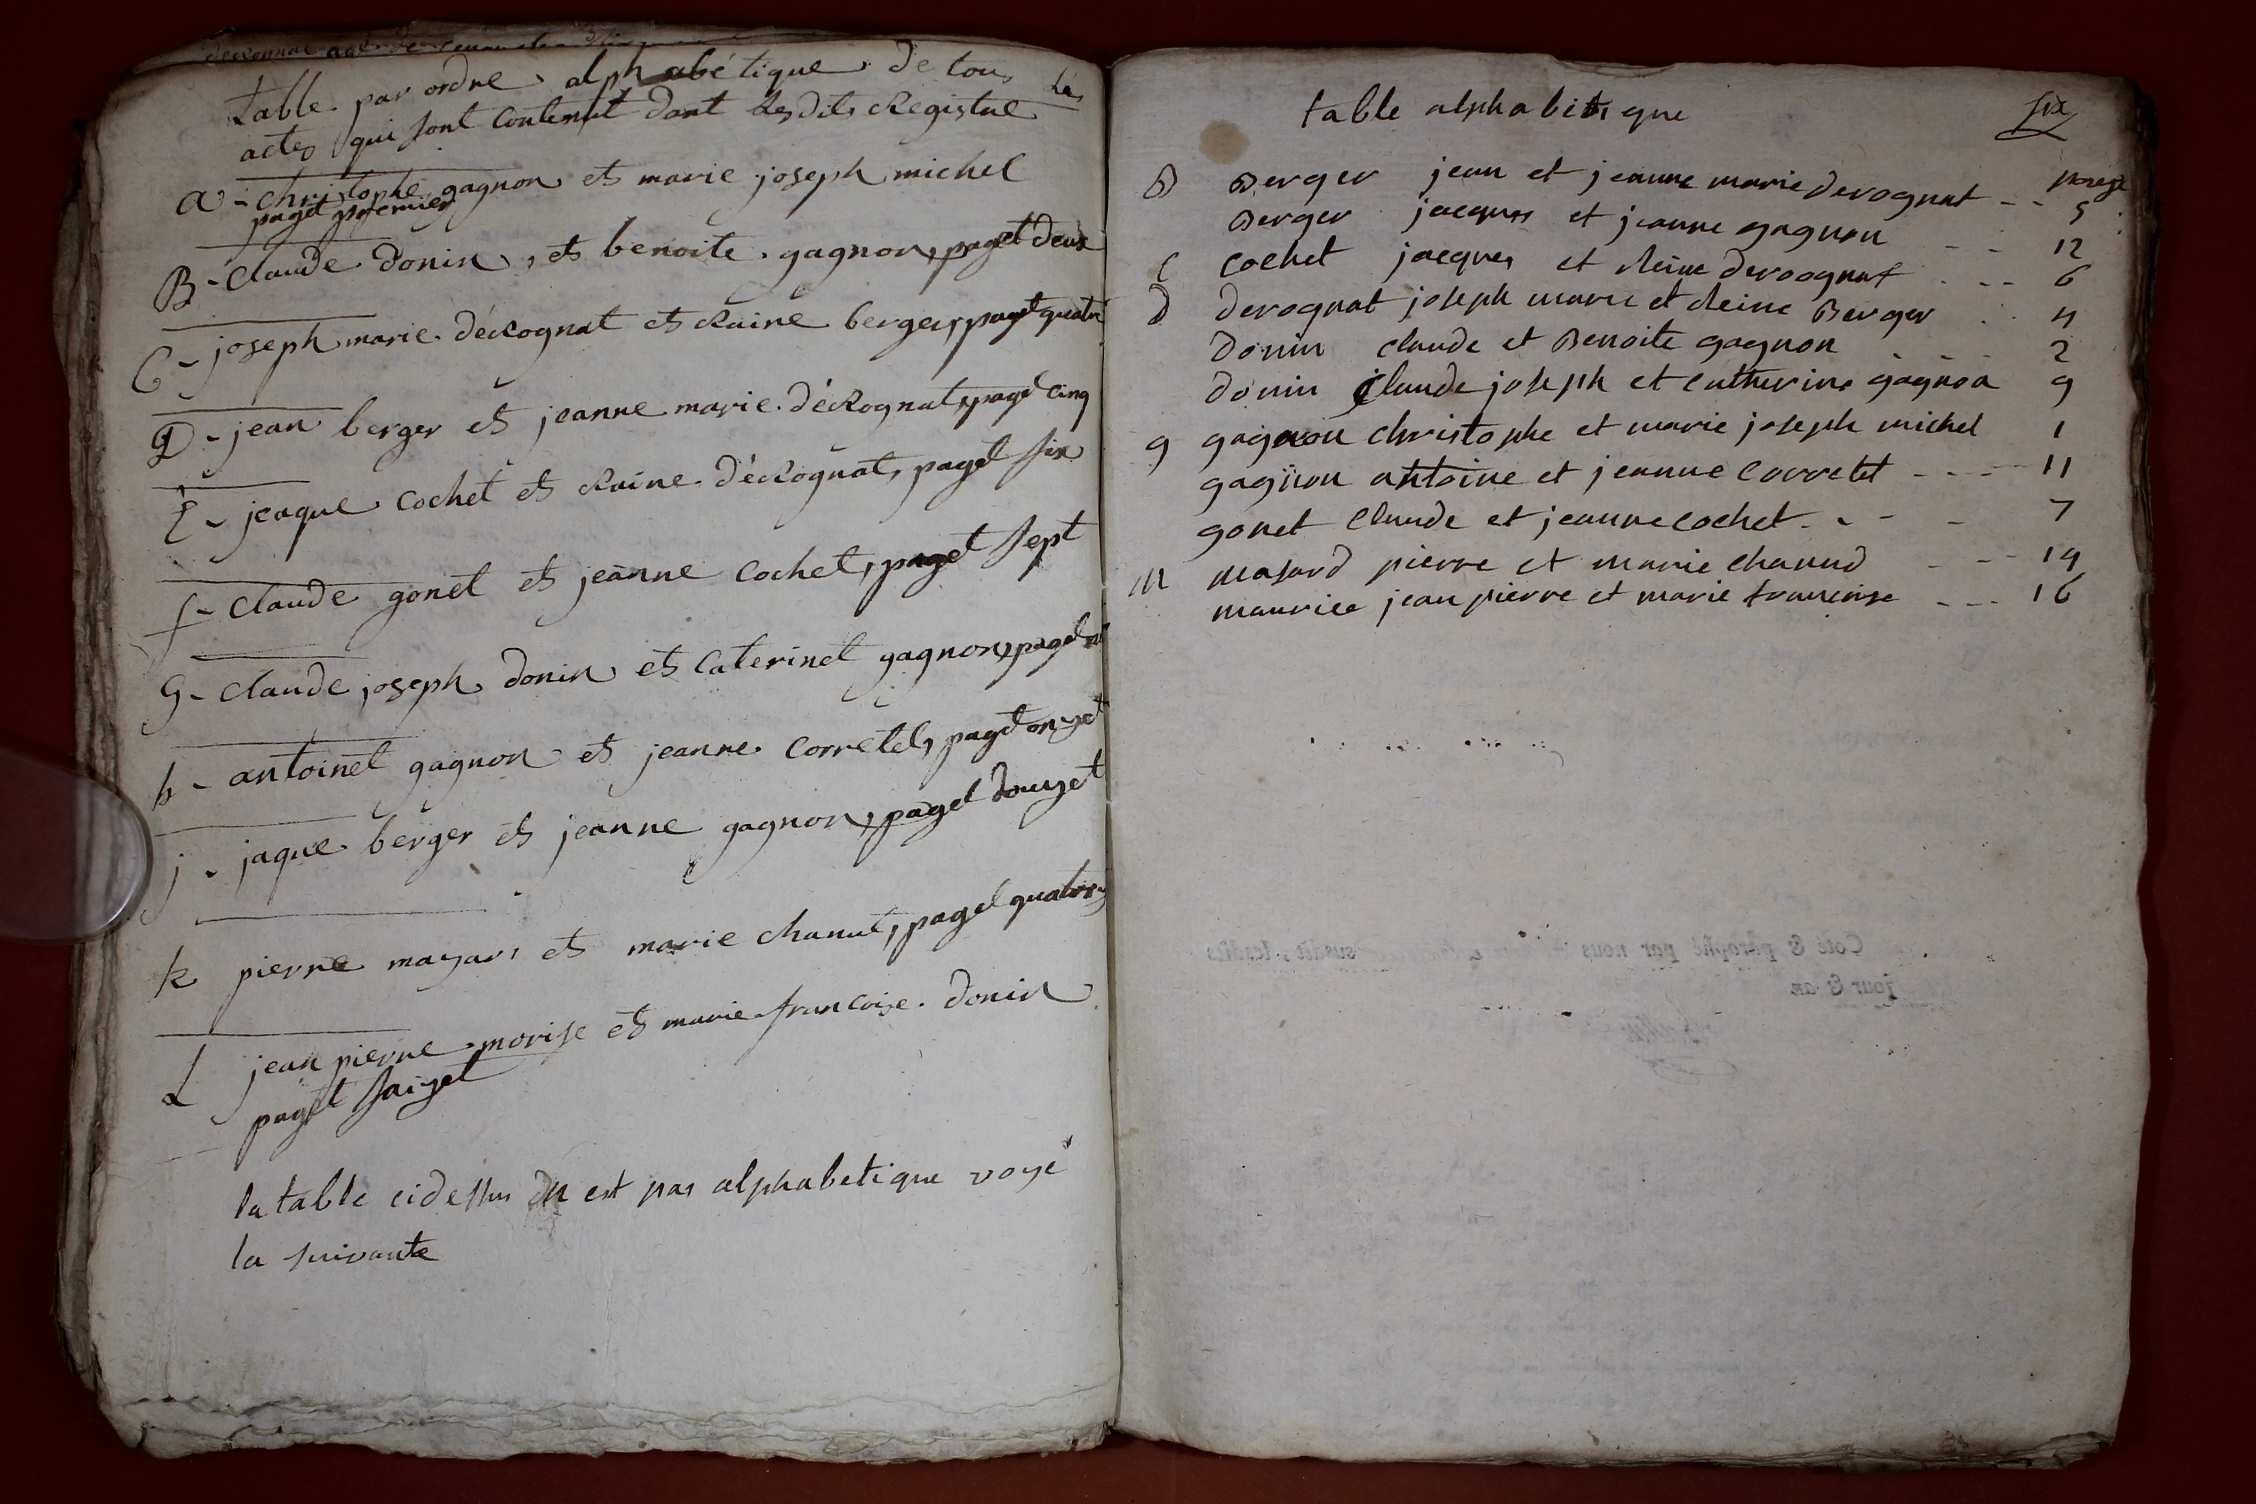 table par ordre alphabétique de tous les
actes qui sont contenut dant lesdits Registre
a - christophe gagnon et marie joseph michel
paget premier
B - claude donin, et benoite gagnon, paget deux
C - joseph marie déRognat et Raine berger, paget quatre
D - jean berger et jeanne marie déRognat, paget cinq
E - jeaque cochet et Raine déRognat, paget six
f - claude gonet et jeanne cochet, paget sept
G - claude joseph donin et caterinet gagnon, paget
h - antoinet gagnon et jeanne corretet, paget onzet
j - jaque berger et jeanne gagnon, paget douzet
k pierre mazars et marie chanut, paget quatorz
L jean pierre morise et marie francoise donin
paget saizet
la table cidessus n est pas alphabetique voyé
la suivante
table alphabetique
six
page
B Berger jean et jeanne marie derognat -- 5
Berger jacques et jeanne gagnon -- 12
C cochet jacques et Reine deroognat --- 6
D derognat joseph marie et Reine Berger .. 4
donin claude et Benoite gagnon - - - 2
donin claude joseph et catherine gagnon 9
g gagnon christophe et marie joseph michel 1
gagnon antoine et jeanne corretet ---- 11
gonet claude et jeanne cochet - - - - 7
M masard pierre et marie chanud --- 14
maurice jean pierre et marie francoise --- 16
Coté & paraphé par nous susdit, lesdits
jour & an.